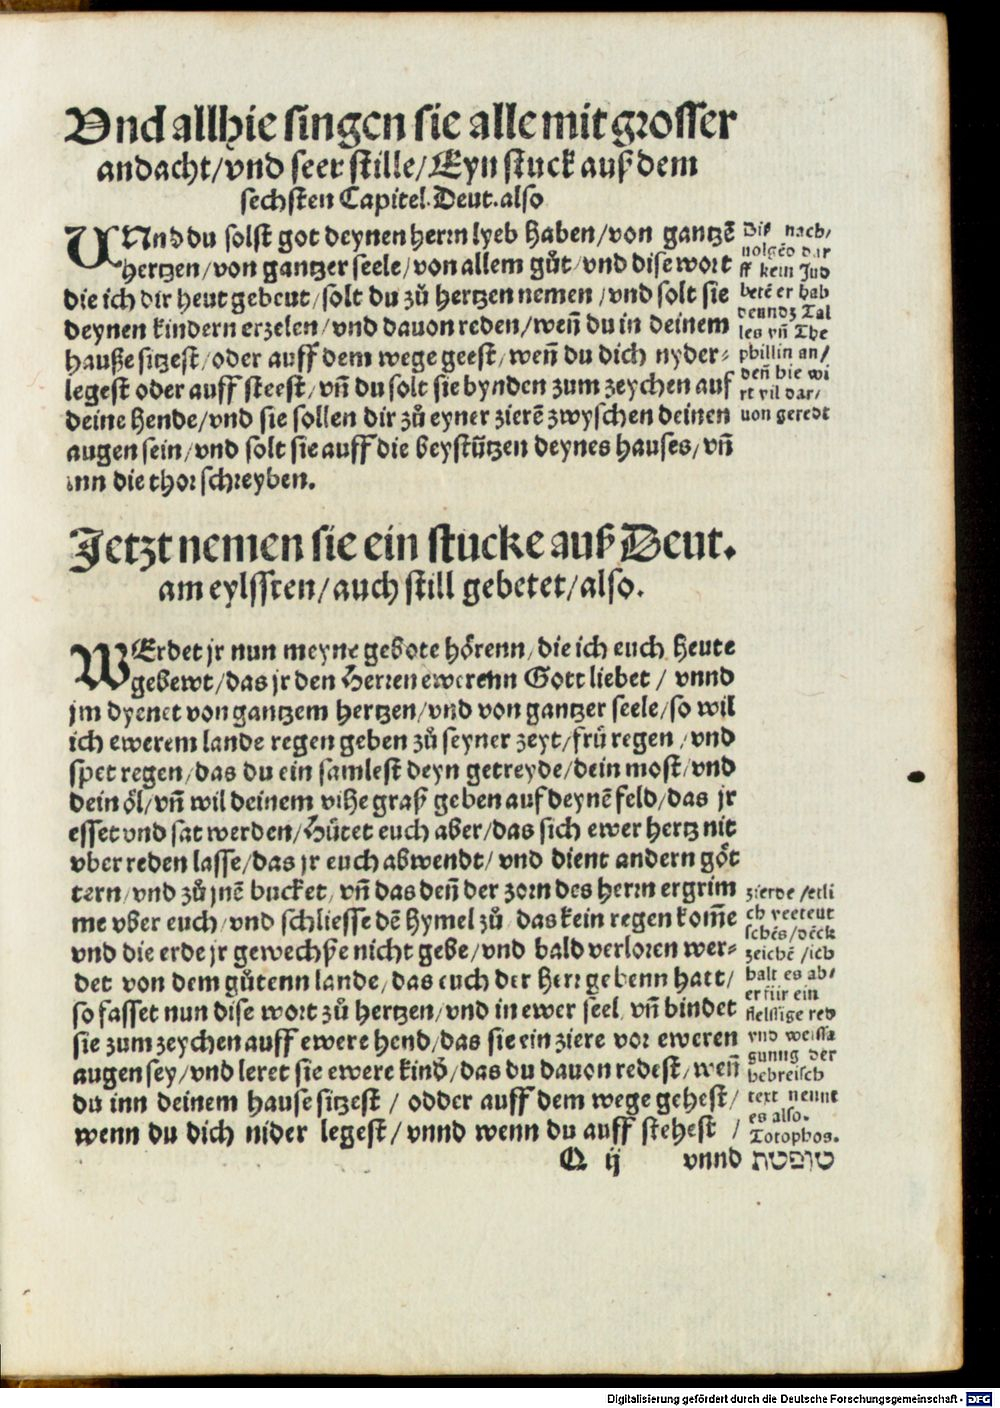 Vnd allhie singen sie alle mit grosser
andacht/vnd seer stille/Eyn stuck auß dem
sechsten Capitel. Deut. also
VNnd du solst got deynen herrn lyeb haben/von gantzē
hertzen/von gantzer seele/von allem gůt/vnd dise wort
die ich dir heut gebeut/solt du zů hertzen nemen/vnd solt sie
deynen kindern erzelen/vnd dauon reden/weñ du in deinem
hauße sitzest/oder auff dem wege geest/weñ du dich nyder-
legest oder auff steest/vñ du solt sie bynden zum zeychen auf
deine hende/vnd sie sollen dir zů eyner zierē zwyschen deinen
augen sein/vnd solt sie auff die beystützen deynes hauses/vñ
inn die thor schreyben.
Diß nach/
uolgēd dar
ff kein Jud
betē er hab
denndz Tal
les vñ The
phillin an/
deñ hie wi
rt vil dar/
uon geredt
Jetzt nemen sie ein stucke auß Deut.
am eylfften/auch still gebetet/also.
WErdet jr nun meyne gebote hörenn/die ich euch heute
gebewt/das jr den Herren ewerenn Gott liebet / vnnd
jm dyenet von gantzem hertzen/vnd von gantzer seele/so wil
ich ewerem lande regen geben zů seyner zeyt/frů regen/vnd
spet regen/das du ein samlest deyn getreyde/dein most/vnd
dein öl/vñ wil deinem vihe graß geben auf deynē feld/das jr
esset vnd sat werden/Hůtet euch aber/das sich ewer hertz nit
vber reden lasse/das jr euch abwendt/vnd dient andern göt
tern/vnd zů jnē bucket/vñ das deñ der zorn des herrn ergrim
me vber euch/vnd schliesse dē hymel zů das kein regen kom̄e
vnd die erde jr gewechße nicht gebe/vnd bald verloren wer-
det von dem gůtenn lande/das euch der Herr gebenn hatt/
so fasset nun dise wort zů hertzen/vnd in ewer seel vñ bindet
sie zum zeychen auff ewere hend/das sie ein ziere vor eweren
augen sey/vnd leret sie ewere kind/das du dauon redest/weñ
du inn deinem hause sitzest / odder auff dem wege gehest/
wenn du dich nider legest/vnnd wenn du auff stehest /
zierde/etli
ch veeteut
schēs/dēck
zeichē/ich
halt es ab/
er für ein
fleissige red
vnd weissa
gunng der
hebreisch
text nennt
es also.
Totophos.
Q ij vnnd טופטת
Digitalisierung gefördert durch die Deutsche Forschungsgemeinschaft - DFG